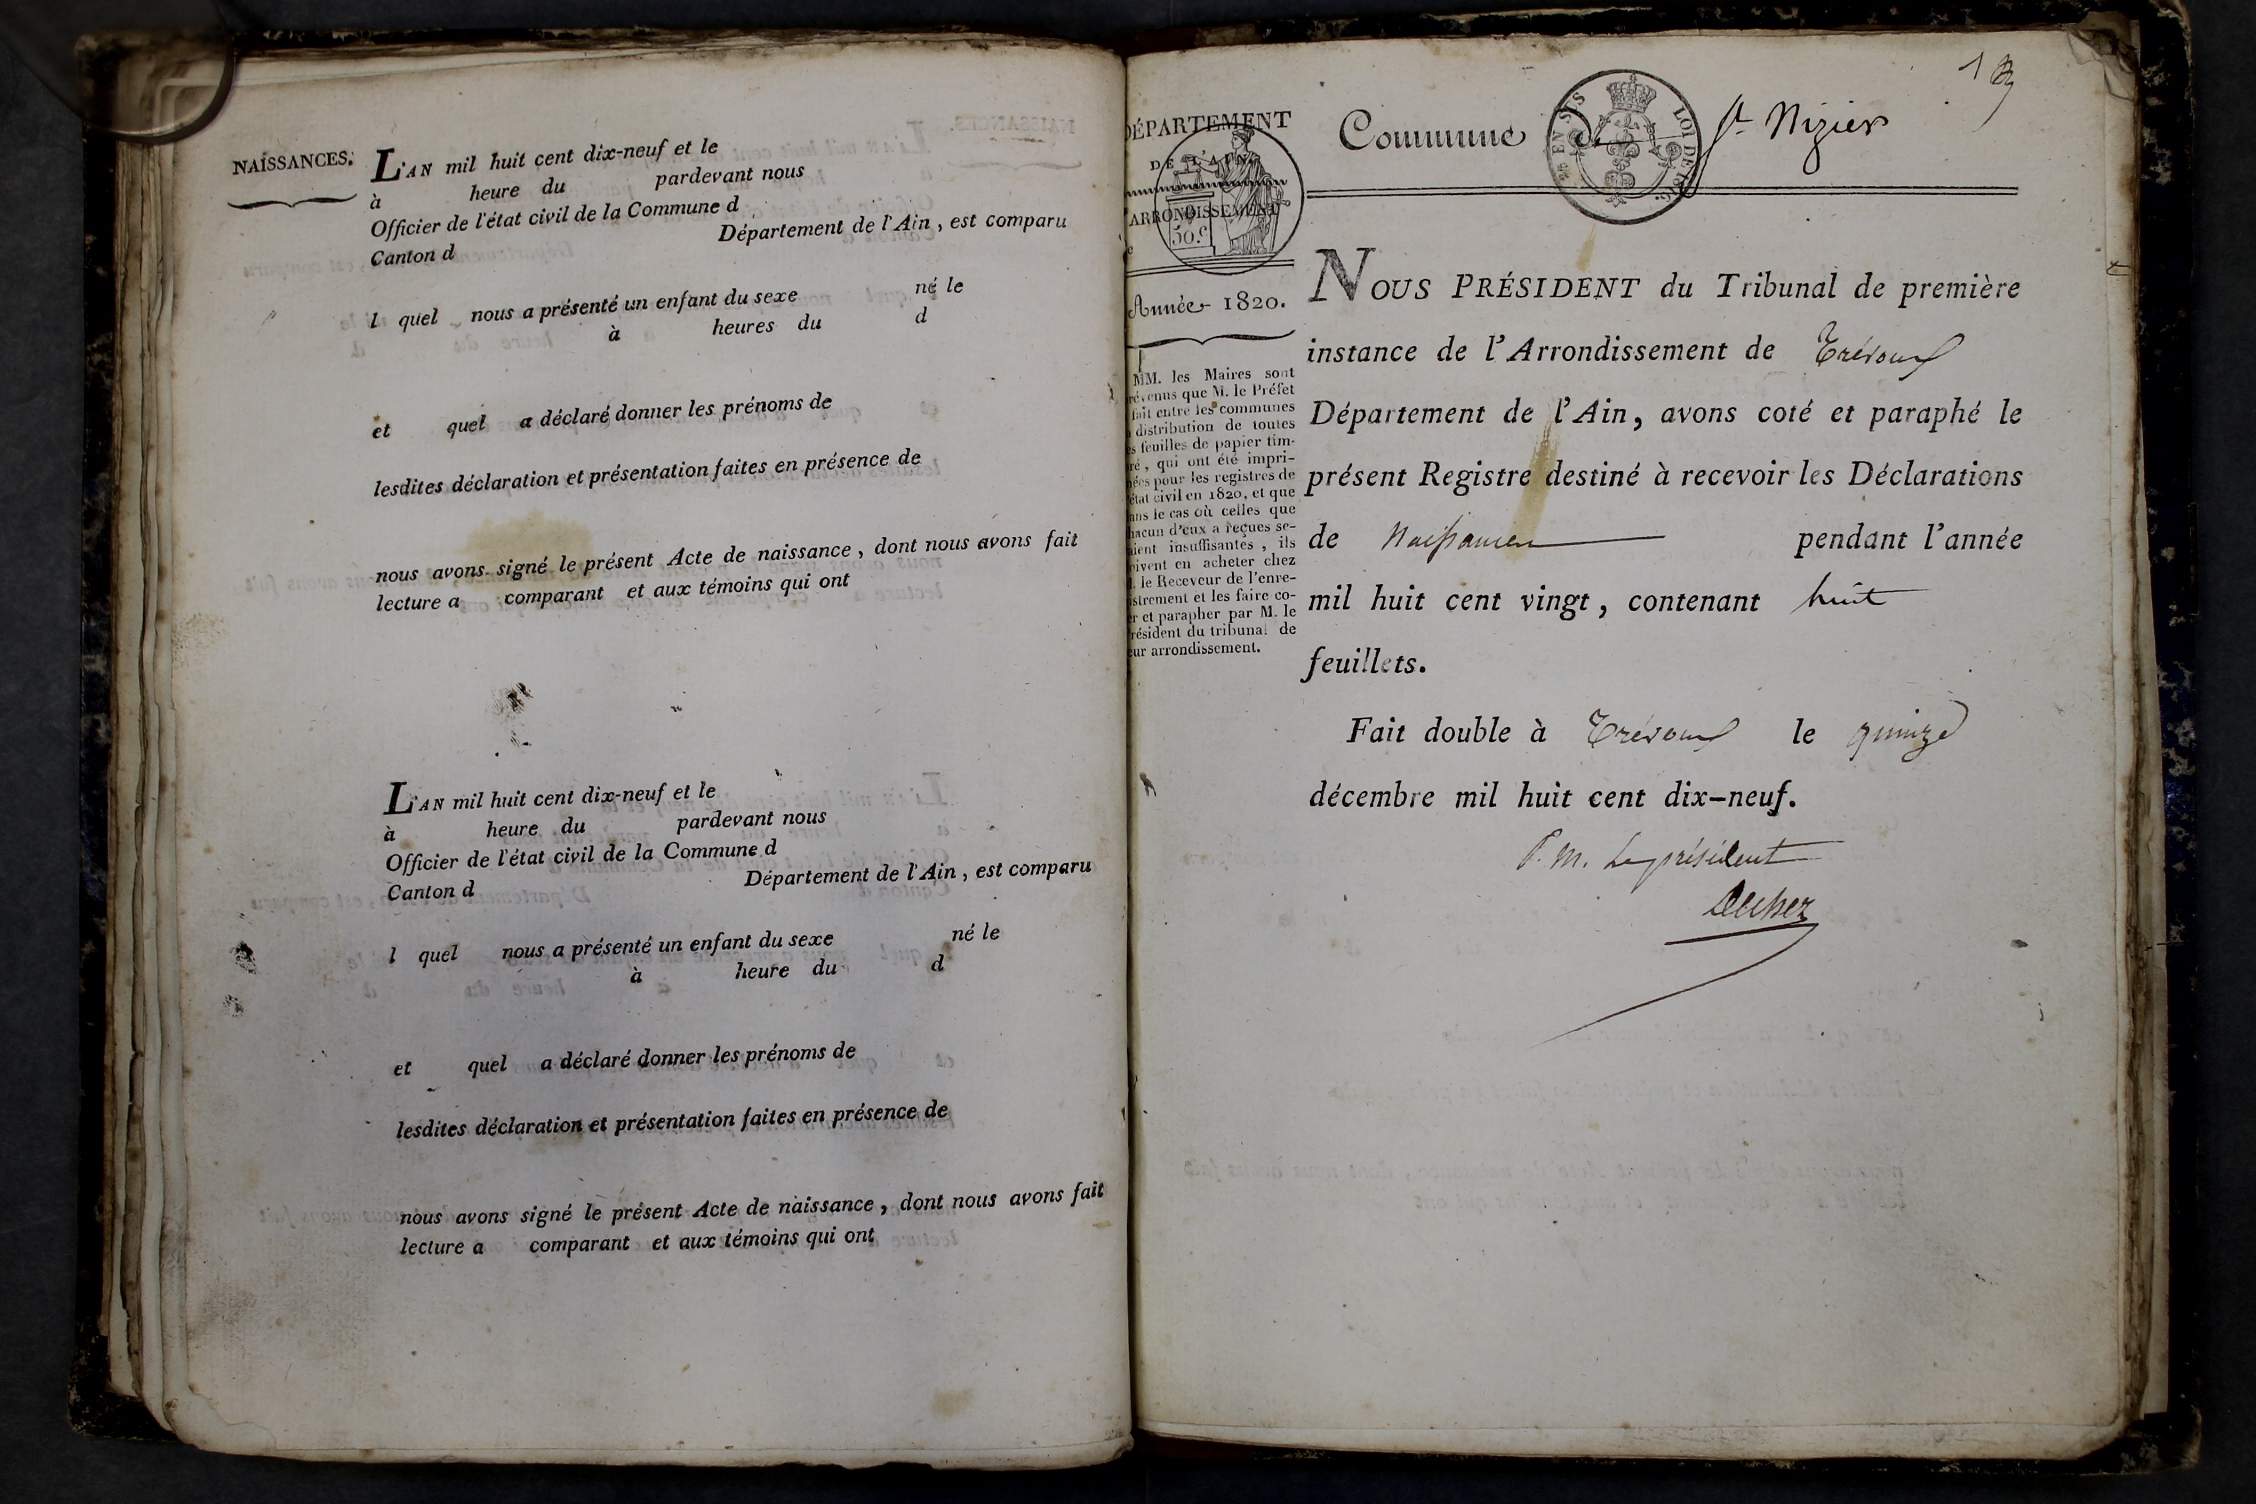 NAISSANCES.
L'AN mil huit cent dix-neuf et le
à heure du pardevant nous
Officier de l'état civil de la Commune d
Canton d Département de l'Ain, est comparu
l quel nous a présenté un enfant du sexe né le
à heures du d
et quel a déclaré donner les prénoms de
lesdites déclaration et présentation faites en présence de
nous avons signé le présent Acte de naissance, dont nous avons fait
lecture a comparant et aux témoins qui ont
L'AN mil huit cent dix-neuf et le
à heure du pardevant nous
Officier de l'état civil de la Commune d
Canton d Département de l'Ain, est comparu
l quel nous a présenté un enfant du sexe né le
à heure du d
et quel a déclaré donner les prénoms de
lesdites déclaration et présentation faites en présence de
nous avons signé le présent Acte de naissance, dont nous avons fait
lecture a comparant et aux témoins qui ont
1
DÉPARTEMENT
DE L'AIN
ARRONDISSEMENT
50 c
Année 1820.
MM. les Maires sont
prévenus que M. le Préfet
fait entre les communes
distribution de toutes
feuilles de papier tim-
, qui ont été impri-
pour les registres de
état civil en 1820, et que
dans le cas où celles que
chacun d'eux a reçues se-
insuffisantes, ils
en acheter chez
le Receveur de l'enre-
et les faire co-
et parapher par M. le
Président du tribunal de
leur arrondissement.
Commune de St Nizier
EN SUS LOI DE 1816.
NOUS PRÉSIDENT du Tribunal de première
instance de l'Arrondissement de Trévoux
Département de l'Ain, avons coté et paraphé le
présent Registre destiné à recevoir les Déclarations
de Naissances pendant l'année
mil huit cent vingt, contenant huit
feuillets.
Fait double à Trévoux le quinze
décembre mil huit cent dix-neuf.
P. M. Le président